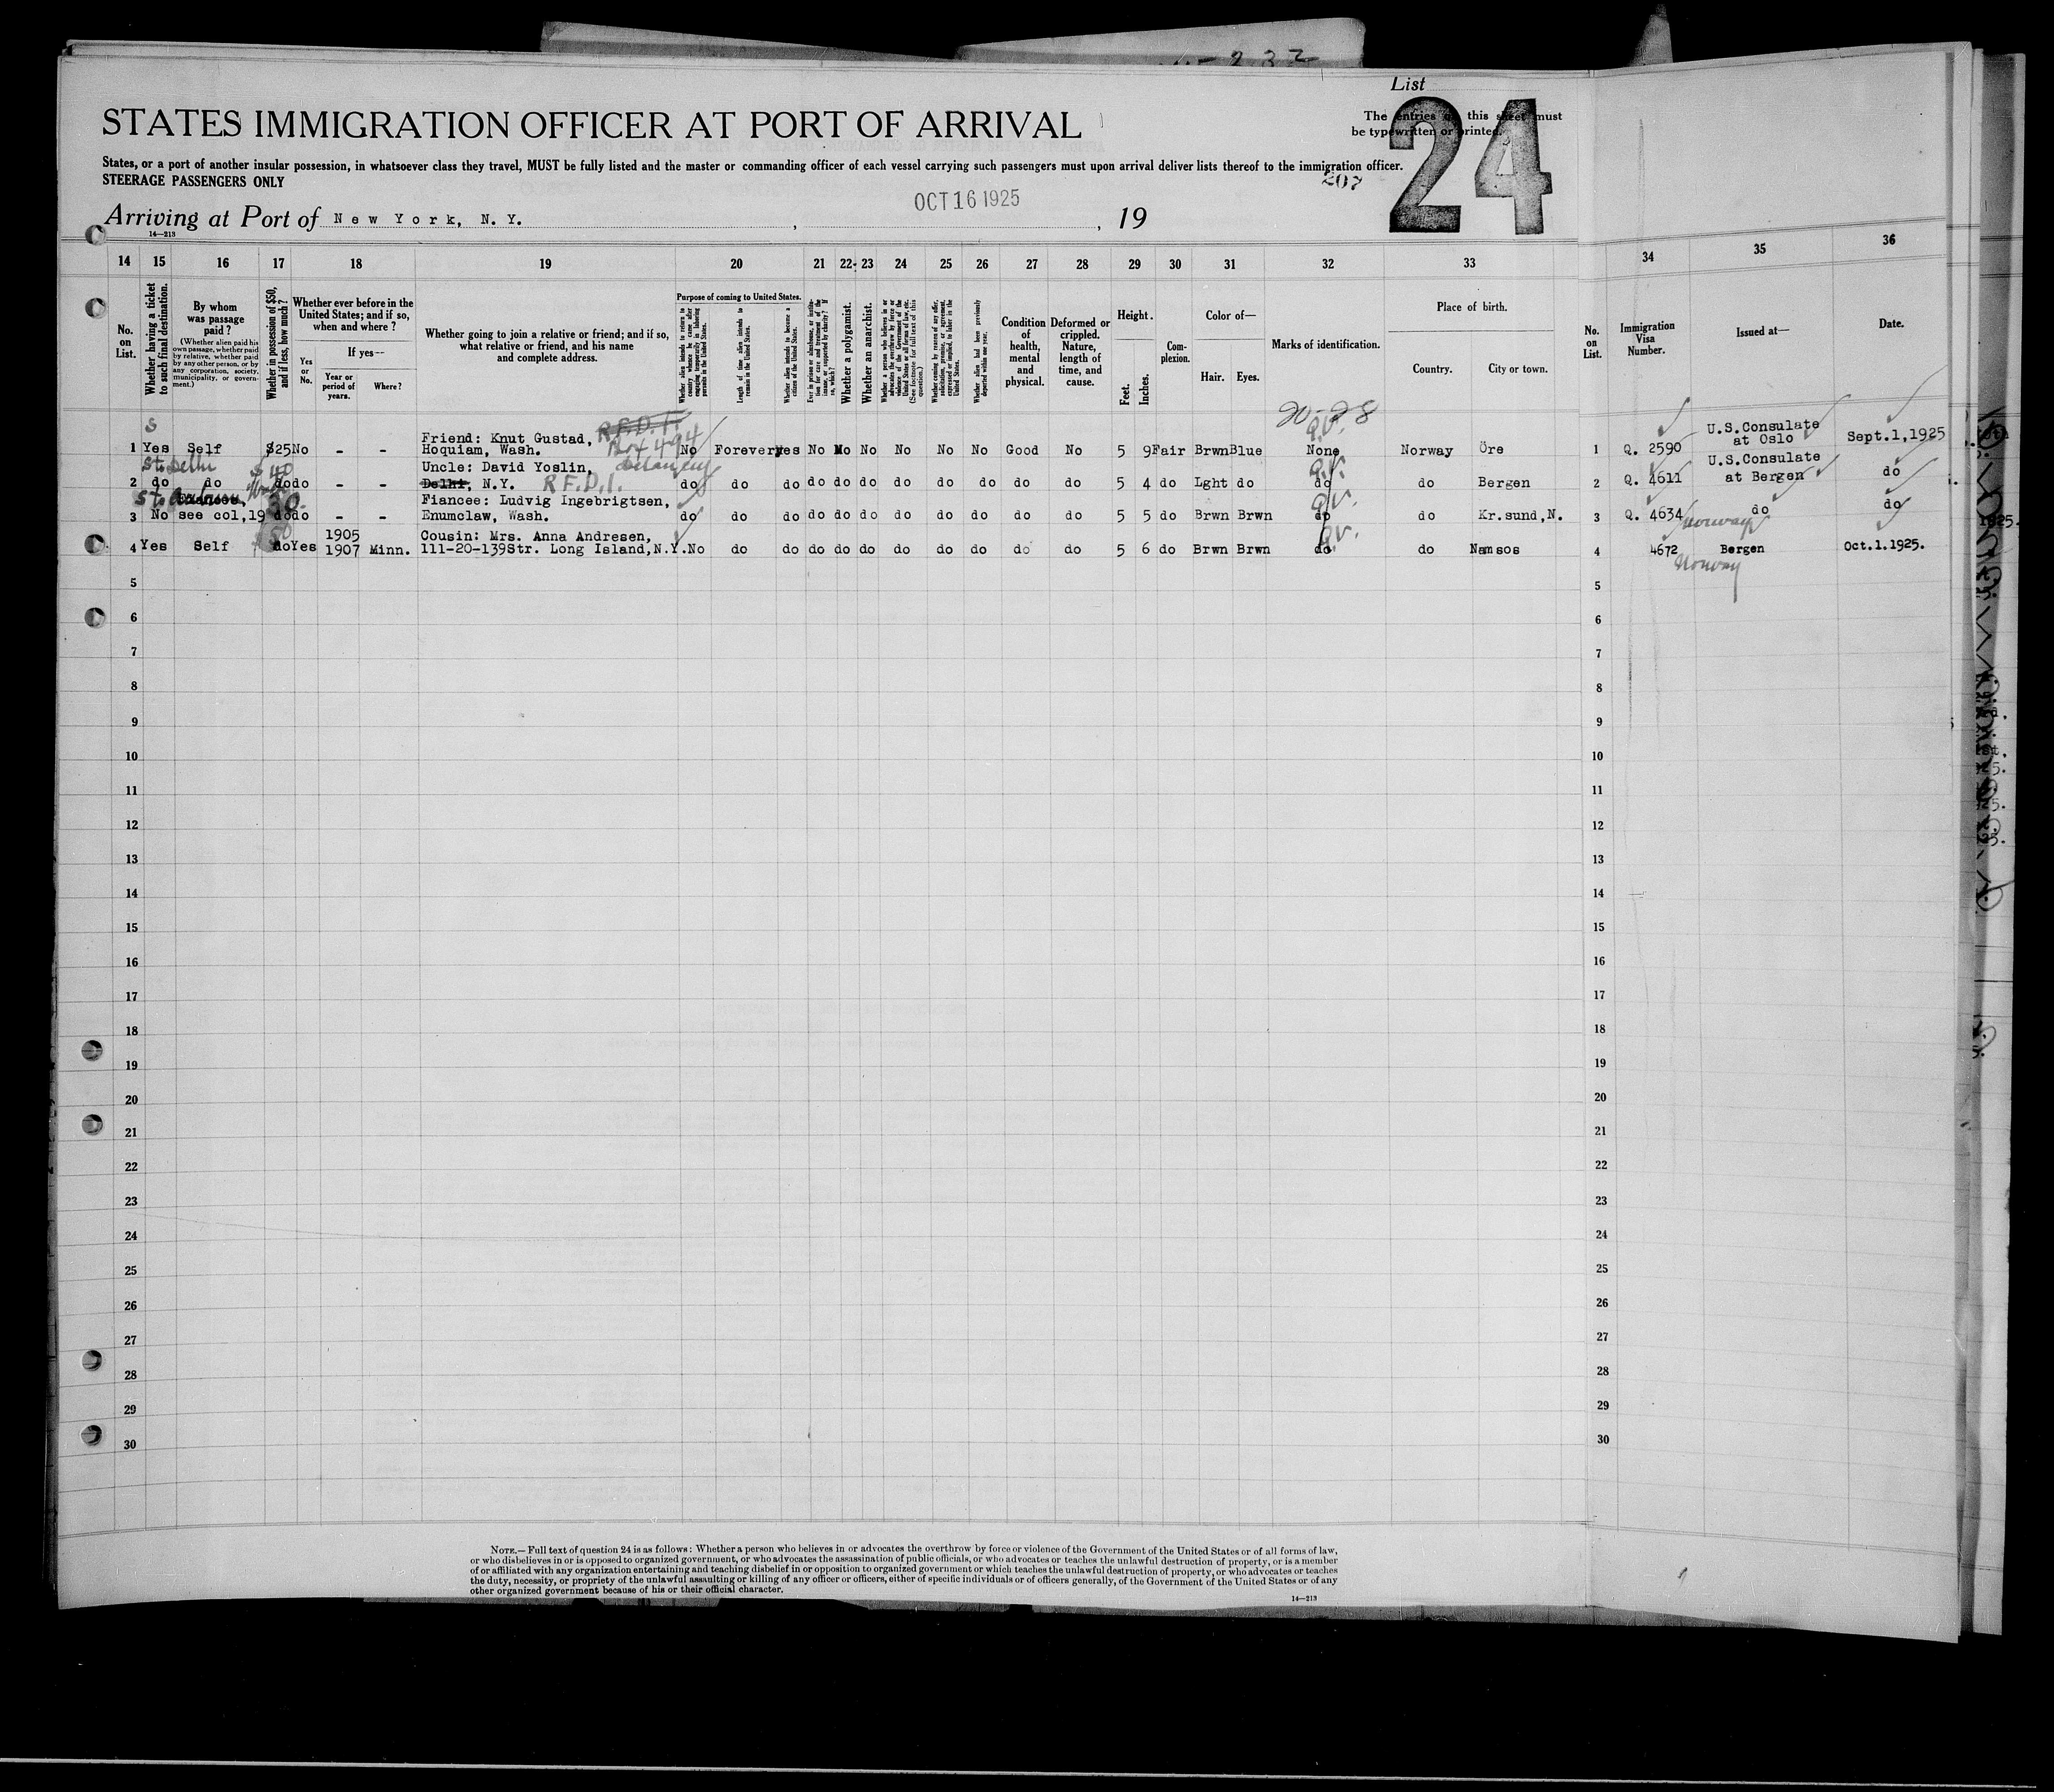 232
List
24
STATES IMMIGRATION OFFICER AT PORT OF ARRIVAL
The entries on this sheet must
be typewritten or printed.
States, or a port of another insular possession, in whatsoever class they travel, MUST be fully listed and the master or commanding officer of each vessel carrying such passengers must upon arrival deliver lists thereof to the immigration officer.
STEERAGE PASSENGERS ONLY
207
Arriving at Port of New York, N. Y. , OCT 16 1925 , 19
14—213
14 15 16 17 18 19 20 21 22 23 24 25 26 27 28 29 30 31 32 33 34 35 36
No. on List.
Whether having a ticket to such final destination.
By whom was passage paid?
(Whether alien paid his own passage, whether paid by relative, whether paid by any other person, or by any corporation, society, municipality, or government.)
Whether in possession of $50, and if less, how much?
Whether ever before in the United States; and if so, when and where?
Yes or No.
If yes—
Year or period of years.
Where?
Whether going to join a relative or friend; and if so, what relative or friend, and his name and complete address.
Purpose of coming to United States.
Whether alien intends to return to country whence he came after engaging temporarily in laboring pursuits in the United States.
Length of time alien intends to remain in the United States.
Whether alien intends to become a citizen of the United States.
Ever in prison or almshouse, or institution for care and treatment of the insane, or supported by charity? If so, which?
Whether a polygamist.
Whether an anarchist.
Whether a person who believes in or advocates the overthrow by force or violence of the Government of the United States or all forms of law, etc. (See footnote for full text of this question.)
Whether coming by reason of any offer, solicitation, promise, or agreement, expressed or implied, to labor in the United States.
Whether alien had been previously deported within one year.
Condition of health, mental and physical.
Deformed or crippled. Nature, length of time, and cause.
Height.
Feet. Inches.
Complexion.
Color of—
Hair. Eyes.
Marks of identification.
Place of birth.
Country. City or town.
No. on List.
Immigration Visa Number.
Issued at—
Date.
20-28
S R.F.D.1. Box 494 Q.V.
1 Yes Self $25 No - - Friend: Knut Gustad, Hoquiam, Wash. No Forever yes No No No No No No Good No 5 9 Fair Brwn Blue None Norway Öre 1 Q. 2590 U.S.Consulate at Oslo Sept.1,1925
St. Delhi $40 Delancey Q.V.
2 do do do do - - Uncle: David Yoslin, Delhi, N.Y. R.F.D.1. do do do do do do do do do do do 5 4 do Lght do do do Bergen 2 Q. 4611 U.S.Consulate at Bergen do
30 Q.V.
3 No see col,19 do do - - Fiancee: Ludvig Ingebrigtsen, Enumclaw, Wash. do do do do do do do do do do do 5 5 do Brwn Brwn do do Kr.sund,N. 3 Q. 4634 do do
Norway
50 Q.V.
4 Yes Self do Yes 1905 1907 Minn. Cousin: Mrs. Anna Andresen, 111-20-139Str. Long Island,N.Y. No do do do do do do do do do do 5 6 do Brwn Brwn do do Namsos 4 4672 Bergen Oct.1.1925.
Norway
5 5
6 6
7 7
8 8
9 9
10 10
11 11
12 12
13 13
14 14
15 15
16 16
17 17
18 18
19 19
20 20
21 21
22 22
23 23
24 24
25 25
26 26
27 27
28 28
29 29
30 30
NOTE.—Full text of question 24 is as follows: Whether a person who believes in or advocates the overthrow by force or violence of the Government of the United States or of all forms of law,
or who disbelieves in or is opposed to organized government, or who advocates the assassination of public officials, or who advocates or teaches the unlawful destruction of property, or is a member
of or affiliated with any organization entertaining and teaching disbelief in or opposition to organized government or which teaches the unlawful destruction of property, or who advocates or teaches
the duty, necessity, or propriety of the unlawful assaulting or killing of any officer or officers, either of specific individuals or of officers generally, of the Government of the United States or of any
other organized government because of his or their official character.
14—213